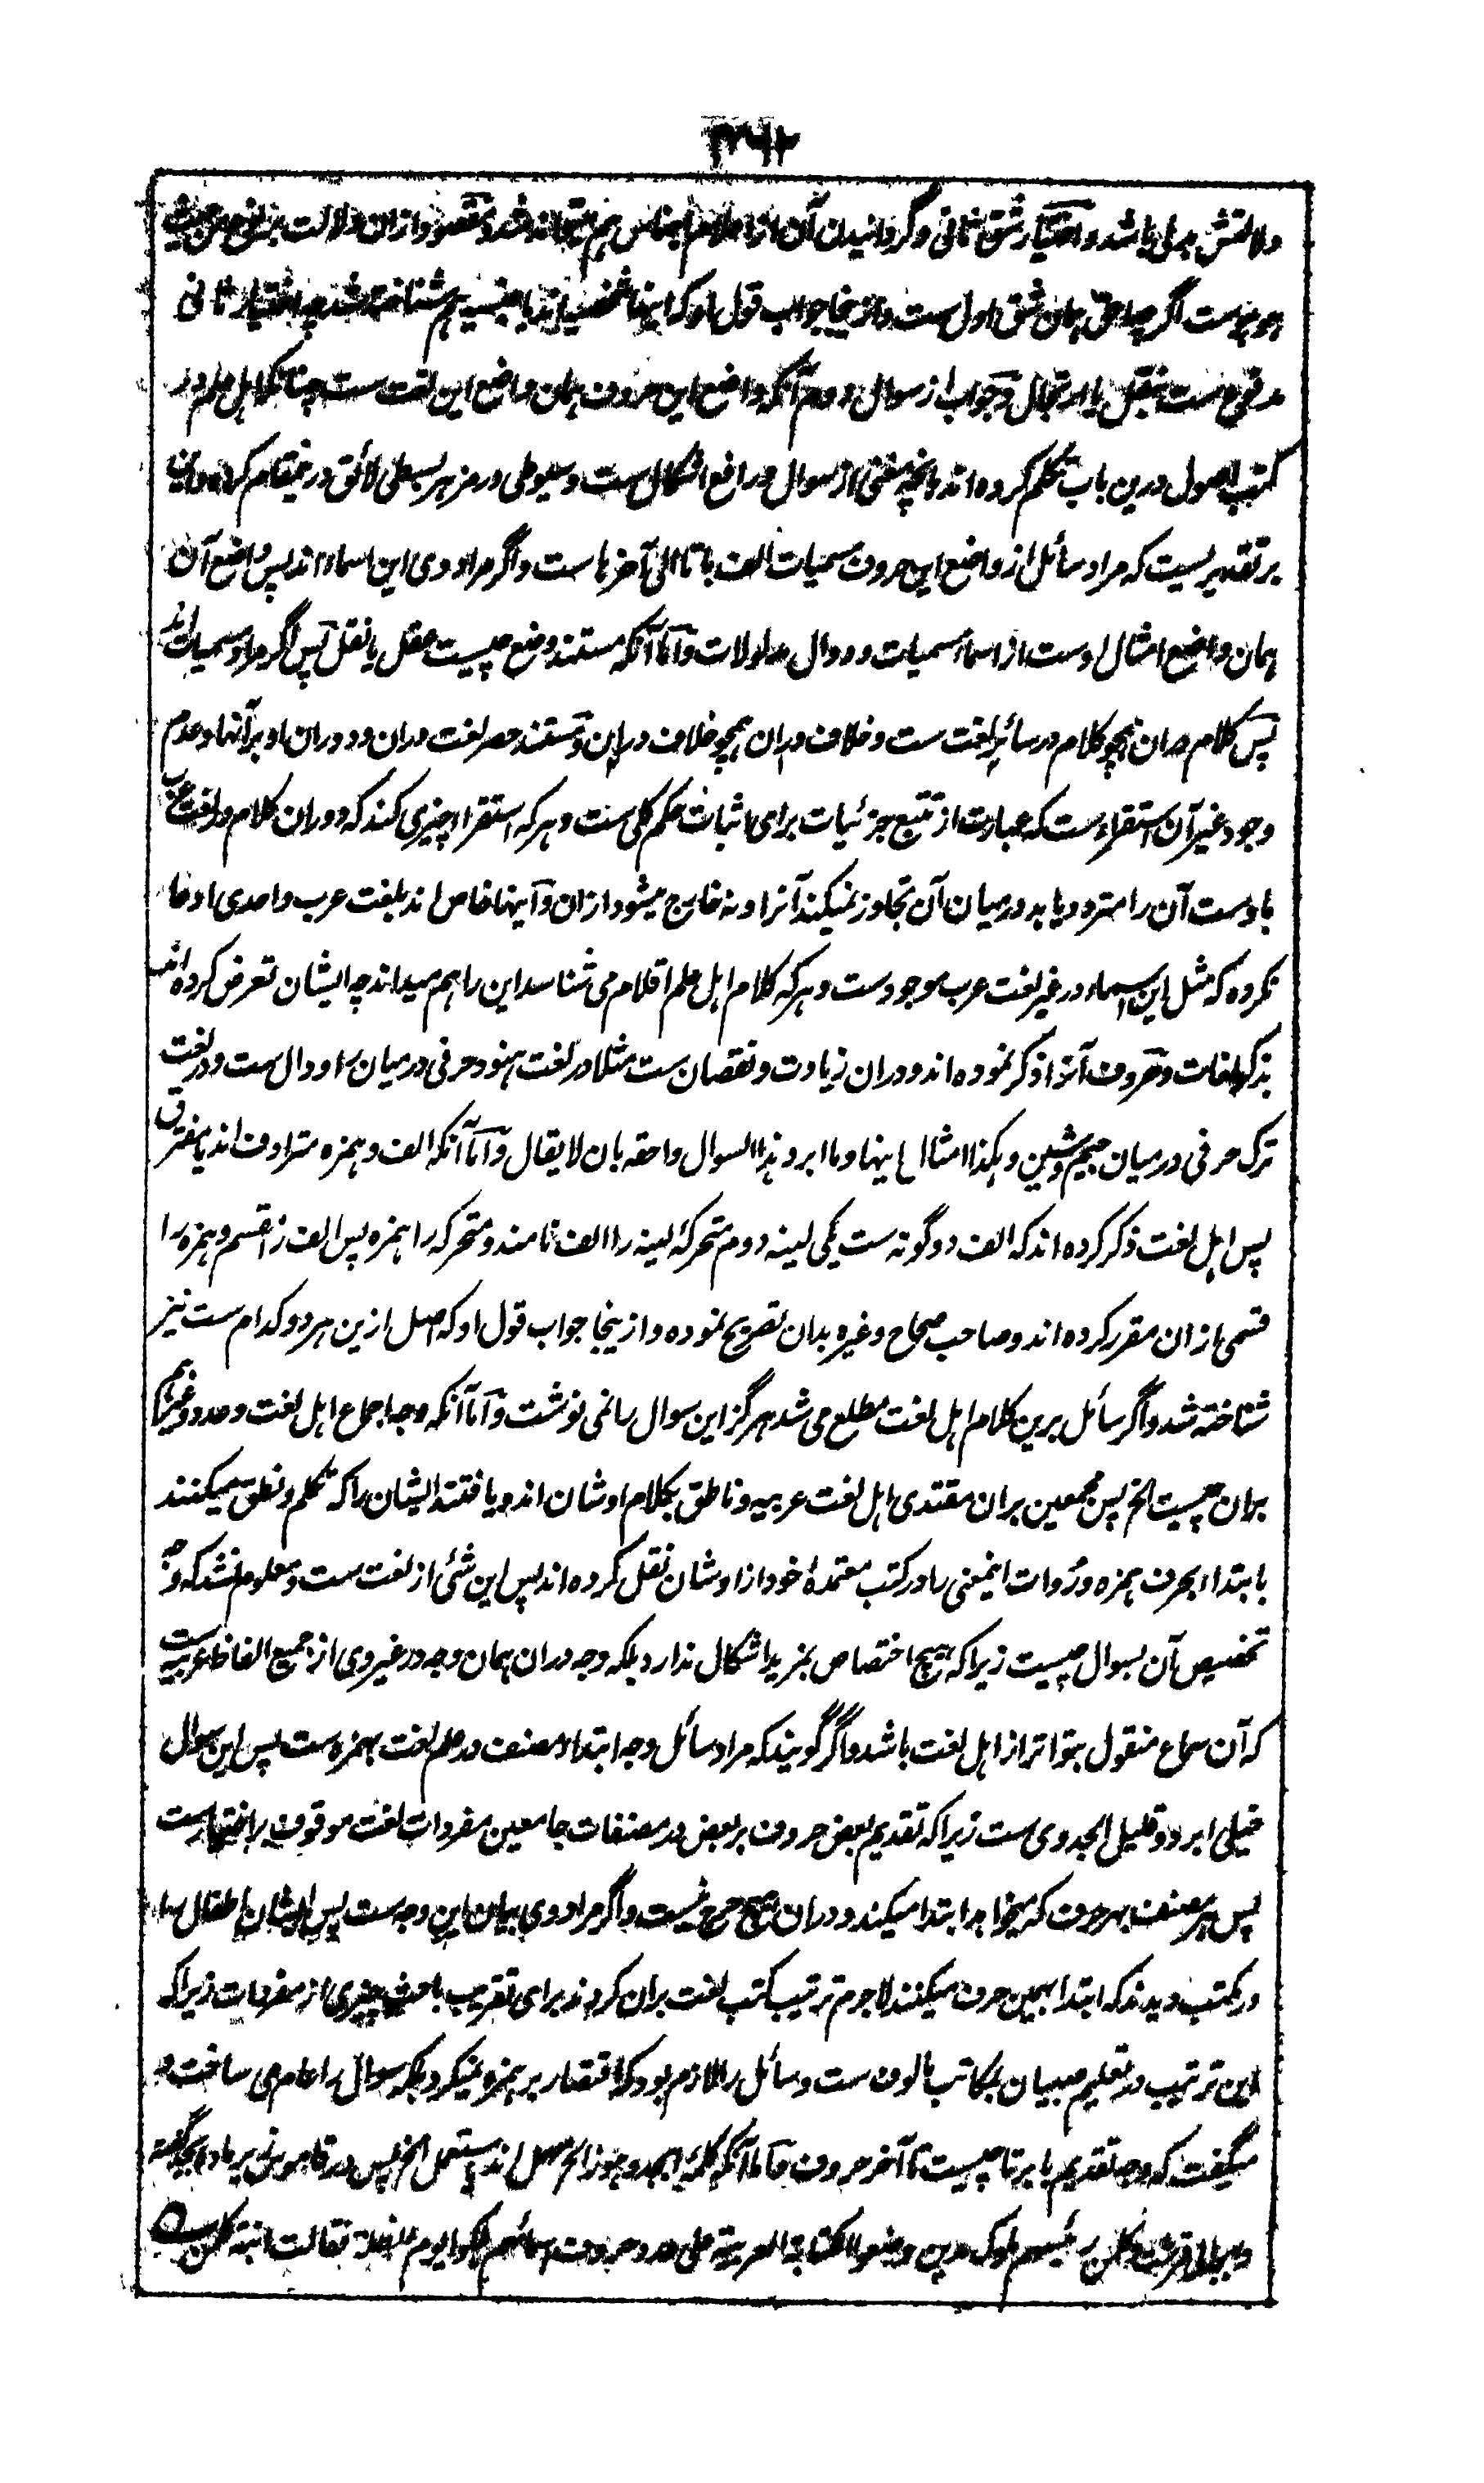 ولالتش بران باشد و اختیار شق ثانی و گردانیدن آن از اعلام اجناس هم میتواند شد و مقصود ازان دلالت بر
موجودست اگرچه احق همان شق اول ست و ازینجا جواب قول او که اینها شخصیه اند یا جنسیه هم شناخته شد چه اختیار ثانی
ست بنقل یا ارتجال و جواب از سوال دوم آنکه واضع این حروف همان واضع این لغت ست چنانکه اهل علم در
کتب اصول درین باب تکلم کرده اند بانچه مغنی از سوال و رافع اشکال ست و سیوطی در مزهر بسطی لائق درینمقام کرده و این
بر تقدیریست که مراد سائل از واضع این حروف مسمیات الف با تا الی آخرها ست و اگر مراد وی این اسماء اند پس واضع آن
همان واضع امثال اوست از اسماء مسمیات و دوال مدلولات و اما آنکه مستند وضع چیست عقل یا نقل پس اگر مراد مسمیات اند
پس کلام دران همچو کلام در سائر لغت ست و خلاف دران همچو خلاف دران و مستند حصر لغت دران و دوران او بر آنها و عدم
وجود غیر آن استقراءست که عبارت از تتبع جزئیات برای اثبات حکم کلی ست و هر که استقراء چیزی کند که دوران کلام و لغت عرب
باوست آن را متردد یابد در میان آن تجاوز نمیکند آنرا و نه خارج میشود ازان و اینها خاص اند بلغت عرب واحدی ادعا
نکرده که مثل این اسماء در غیر لغت عرب موجودست و هر که کلام اهل علم اقلام می شناسد این را هم میداند چه ایشان تعرض کرده اند
بذکر لغات و حروف آنرا ذکر نموده اند و دران زیادت و نقصان ست مثلا در لغت هنود حرفی درمیان را و دال ست و در لغت
ترک حرفی درمیان جیم و شین و هکذا امثال اینها و ما ابرد هذا السوال و احقه بان لا یقال و اما آنکه الف و همزه مترادف اند یا مفترق
پس اهل لغت ذکر کرده اند که الف دو گونه ست یکی لینه دوم متحرکه لینه را الف نامند و متحرکه را همزه پس الف را قسم و همزه را
قسمی ازان مقرر کرده اند و صاحب صحاح و غیره بدان تصریح نموده و ازینجا جواب قول او که اصل ازین هر دو کدام ست نیز
شناخته شد و اگر سائل برین کلام اهل لغت مطلع می شد هرگز این سوال را نمی نوشت و اما آنکه وجه اجماع اهل لغت و عدد و غیرهم
بران چیست الخ پس مجمعین بران مقتدی اهل لغت عربیه و ناطق بکلام اوشان اند و یافتند ایشان را که تکلم و نطق میکنند
بابتداء بحرف همزه و روات اینمعنی را در کتب معتمدهٔ خود از اوشان نقل کرده اند پس این شئی از لغت ست و معلوم نشد که وجه
تخصیص آن بسوال چیست زیرا که هیچ اختصاص بمزید اشکال ندارد بلکه وجه دران همان وجه در غیر وی از جمیع الفاظ عربیه ست
که آن سماع منقول بتواتر از اهل لغت باشد و اگر گویند که مراد سائل وجه ابتداء مصنف در علم لغت بهمزه ست پس این سوال
خیلی ابرد و قلیل الجدوی ست زیرا که تقدیم بعض حروف بر بعض در مصنفات جامعین مفردات لغت موقوف بر اختیارست
پس هر مصنف بهر حرف که میخواهد ابتدا میکند و دران هیچ حرج نیست و اگر مراد وی بیان این وجه ست پس ایشان اطفال را
در مکتب دیدند که ابتدا بهمین حرف میکنند لاجرم ترتیب کتب لغت بران کردند برای تقریب باحث چیزی از مفردات زیرا که
این ترتیب در تعلیم صبیان بمکاتب مالوف ست و سائل را لازم بود که اقتصار بر همزه نمیکرد بلکه سوال را عام می ساخت و
میگفت که وجه تقدیم با بر تا چیست تا آخر حروف و اما آنکه کلمهٔ ابجد و هوز الخ مهمل اند یا مستعمل الخ پس در قاموس زیر مادهٔ ابجد گفته
و ابجد الی قرشت و کلمن رئیسهم ملوک مدین وضعوا الکتابة العربیة علی عدد حروف اسمائهم هلکوا یوم الظلة فقالت ابنة کلمن